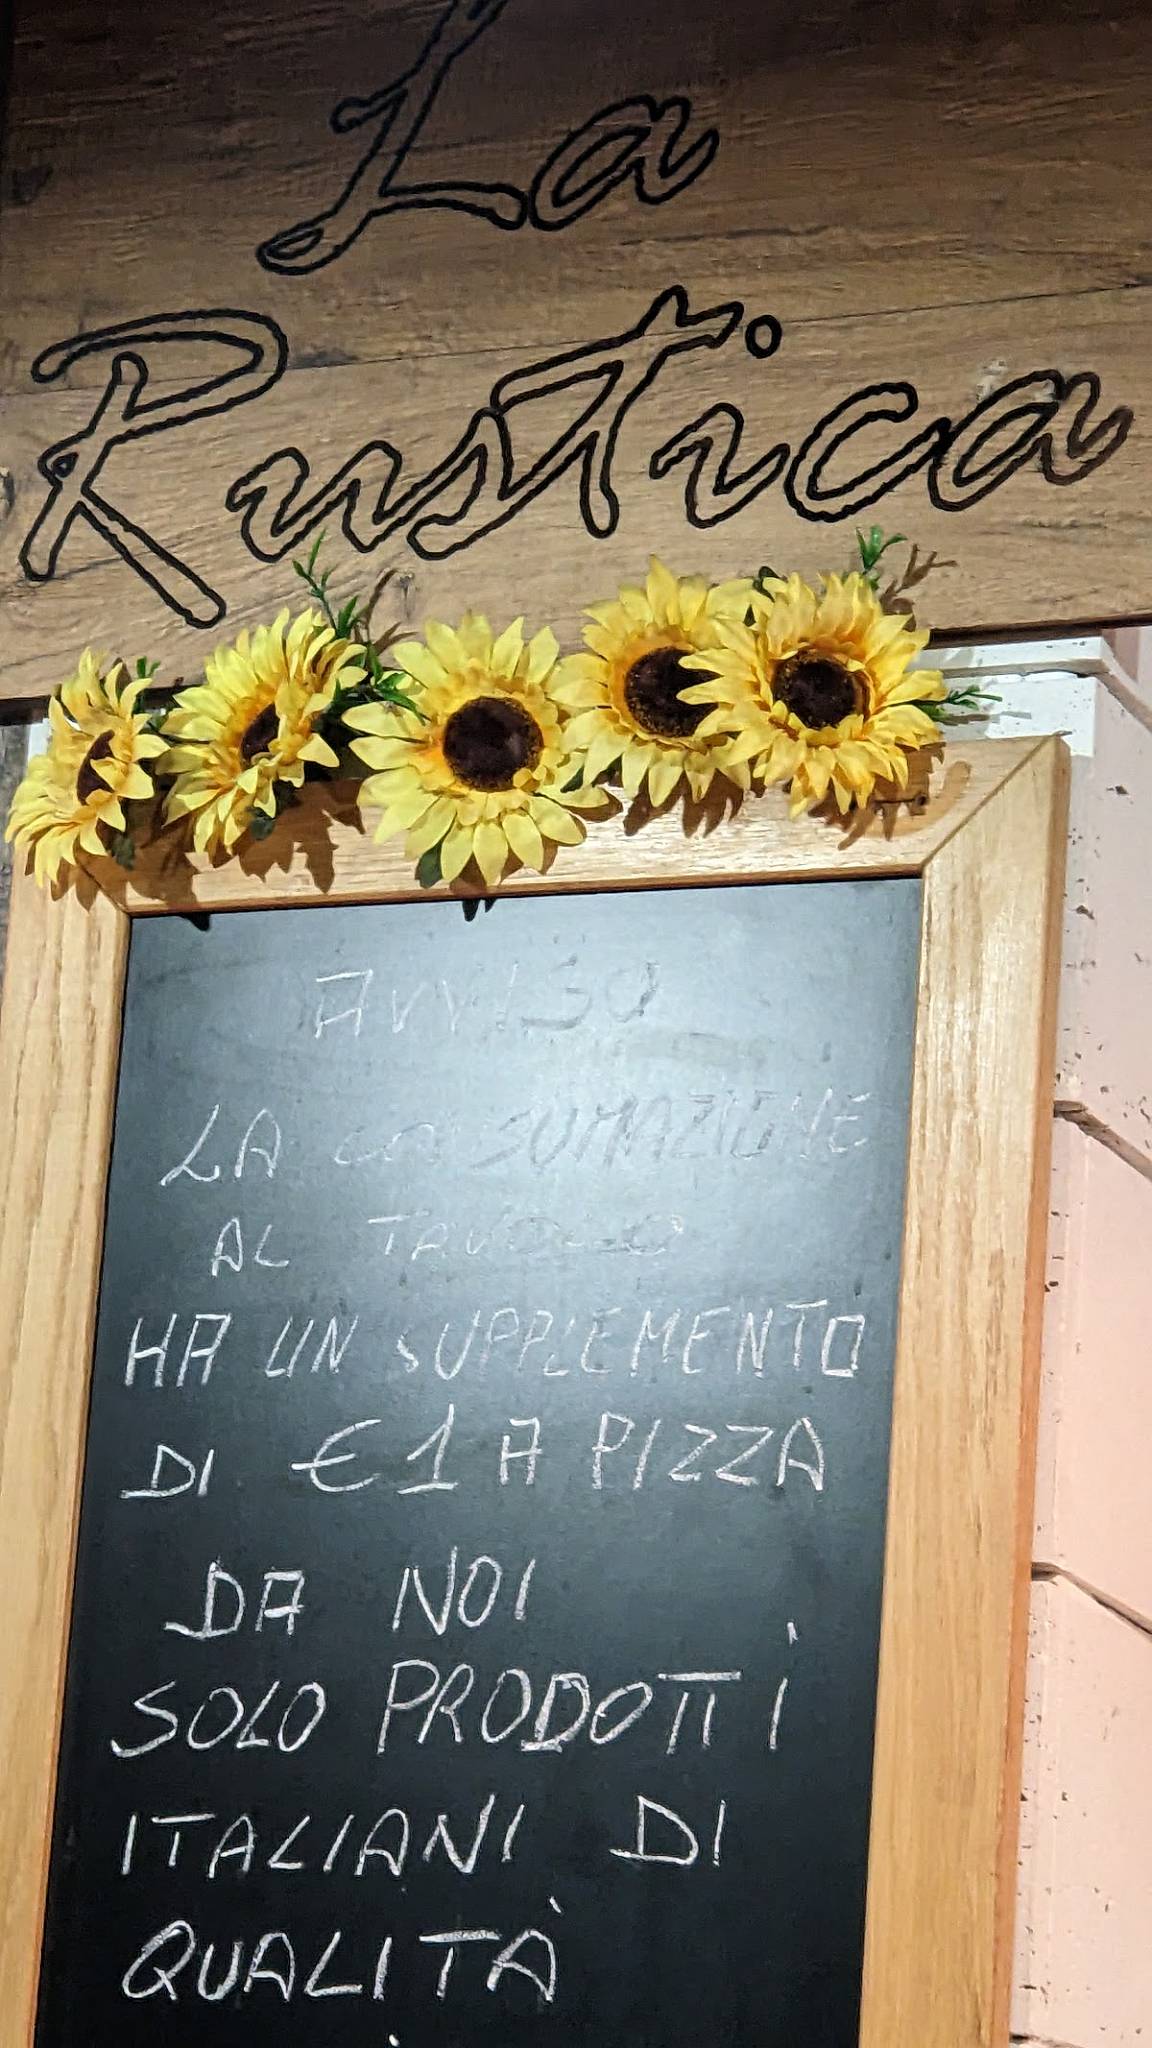 La
Rustica
AVVISO
LA CONSUMAZIONE
AL TAVOLO
HA UN SUPPLEMENTO
DI €1 A PIZZA
DA NOI
SOLO PRODOTTI
ITALIANI DI
QUALITÀ